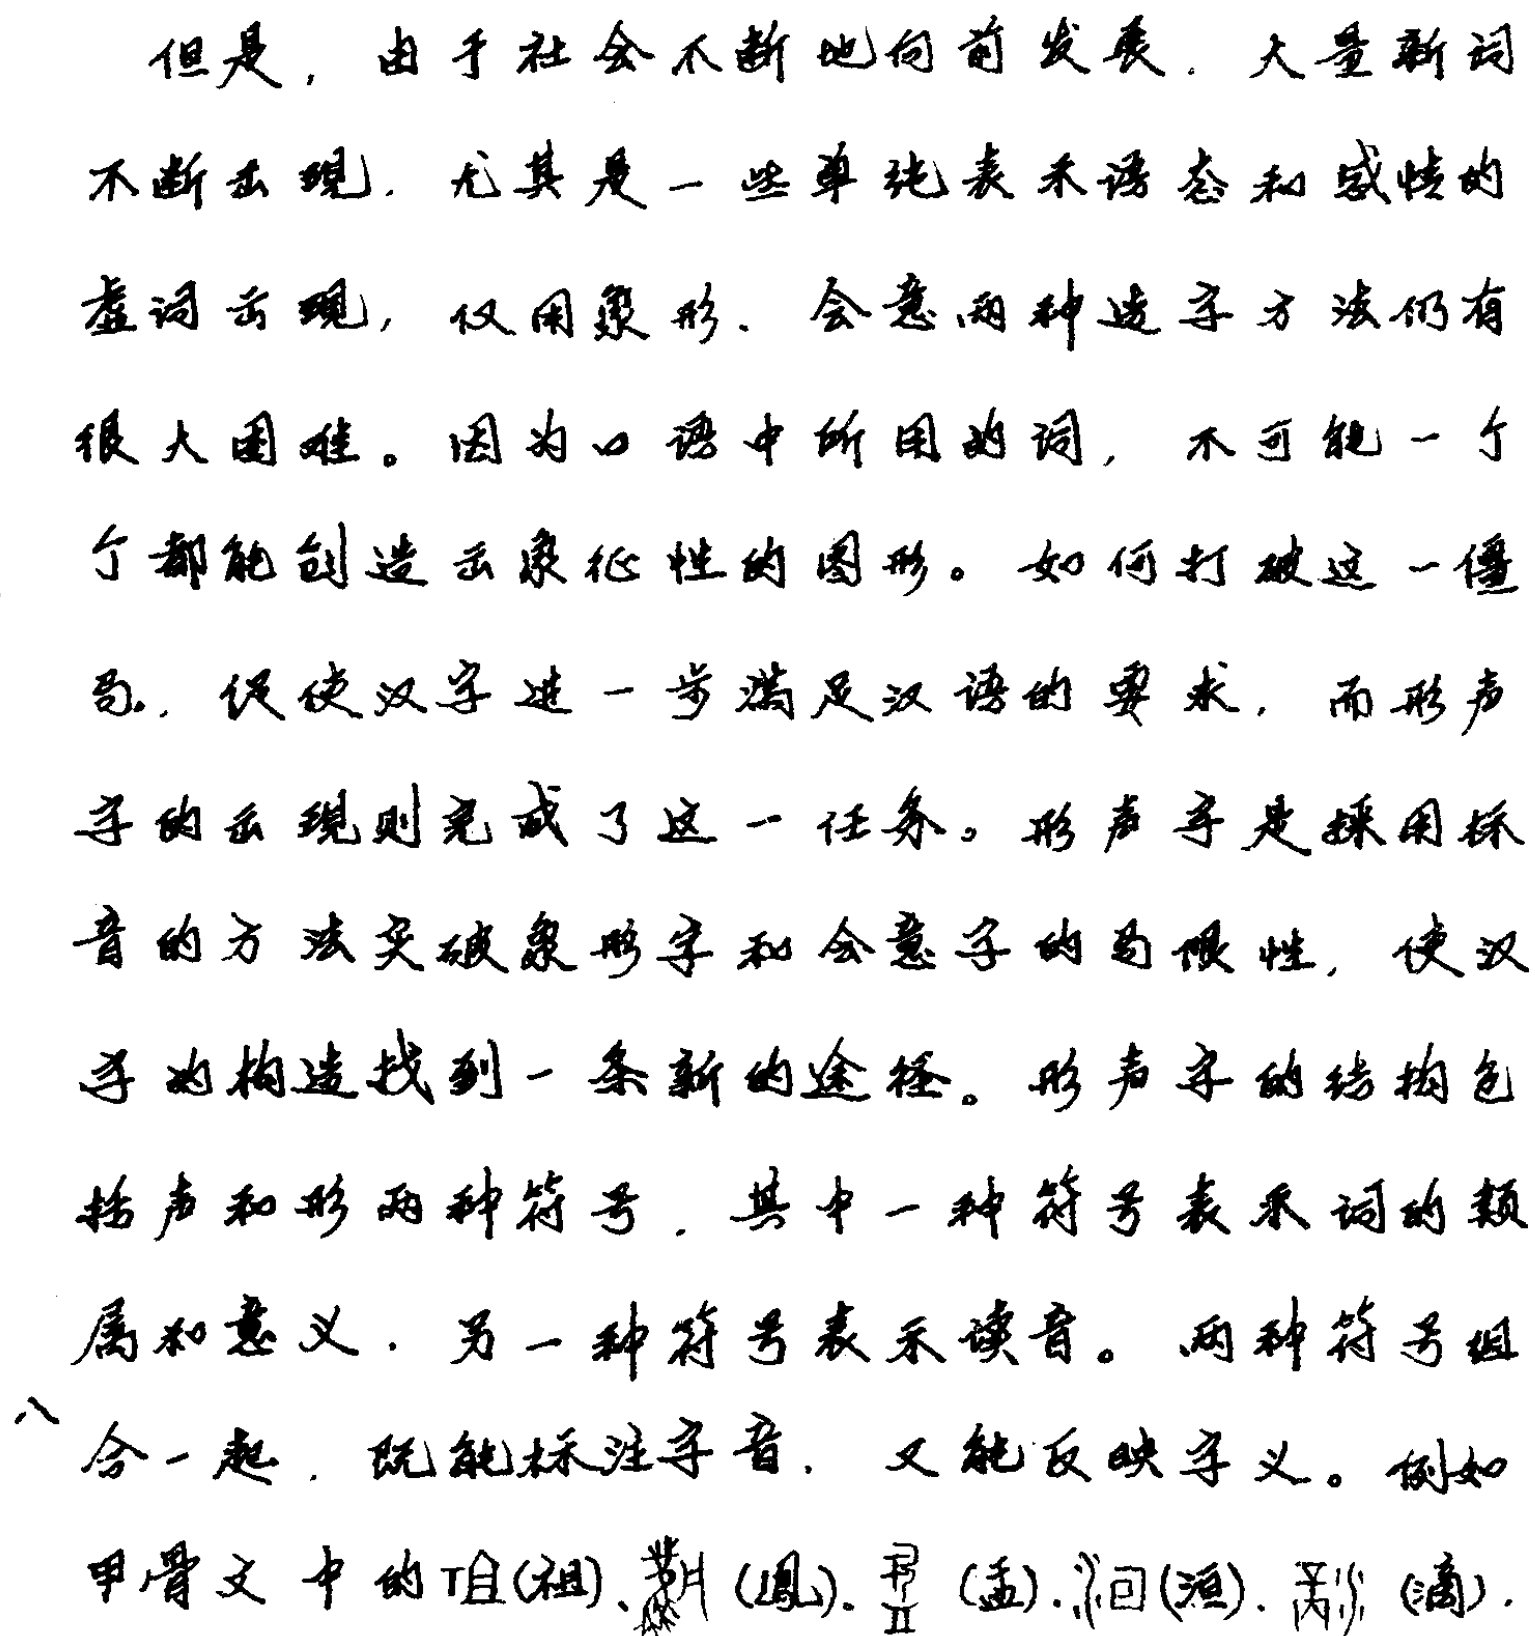 但是，由于社会不断地向前发展，大量新词
不断出现，尤其是一些单纯表示语态和感情的
虚词出现，仅用象形、会意两种造字方法仍有
很大困难。因为口语中所用的词，不可能一个
个都能创造出象征性的图形。如何打破这一僵
局，促使汉字进一步满足汉语的要求，而形声
字的出现则完成了这一任务。形声字是採用採
音的方法突破象形字和会意字的局限性，使汉
字的构造找到一条新的途径。形声字的结构包
括声和形两种符号，其中一种符号表示词的类
属和意义，另一种符号表示读音。两种符号组
八
合一起，既能标注字音，又能反映字义。例如
甲骨文中的(祖)、(鳳)、(孟)、(洹)、(滴)，